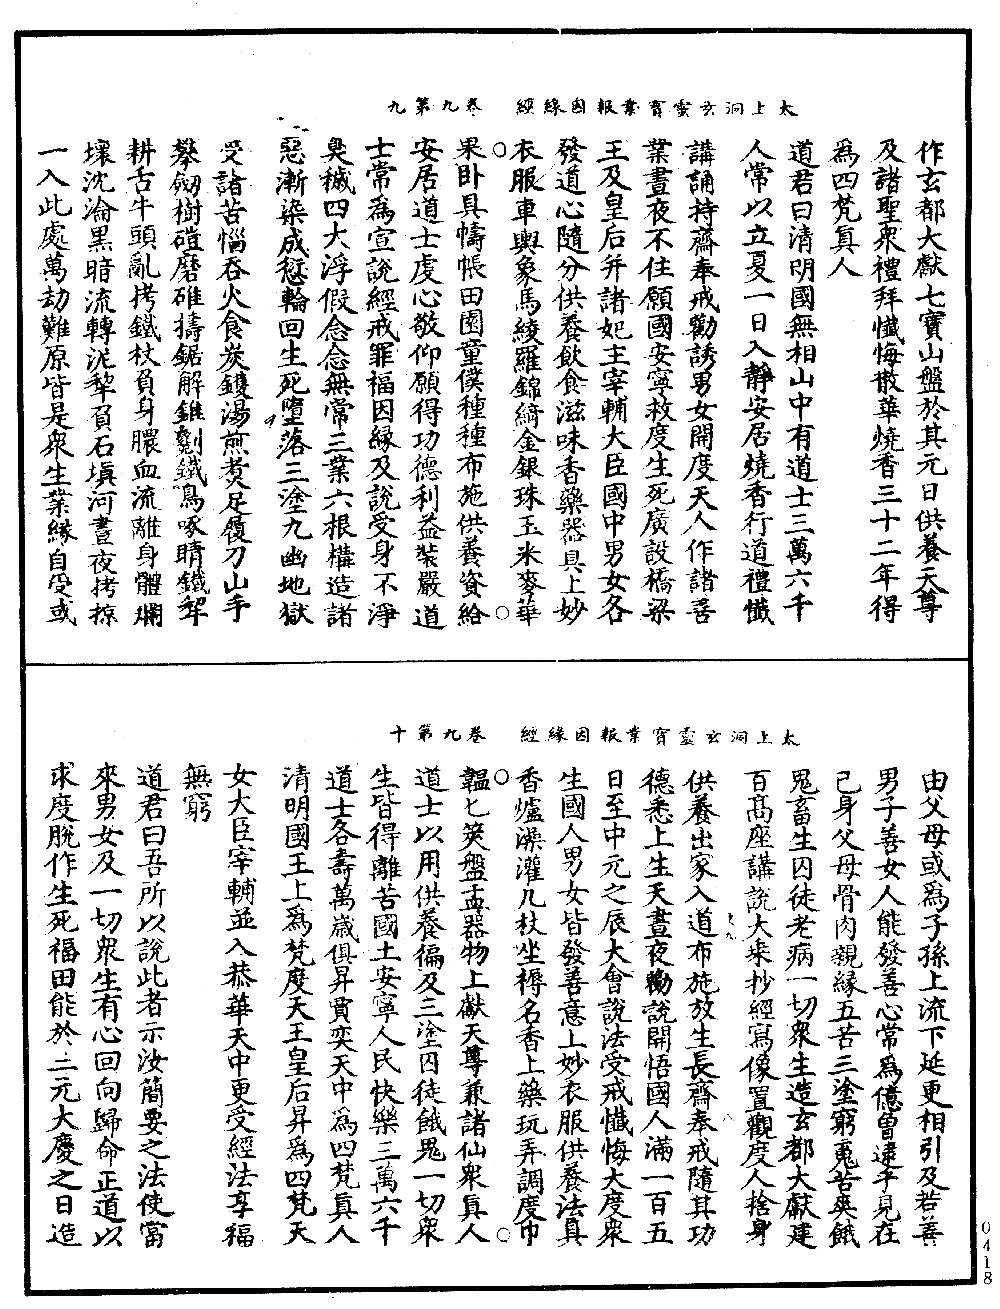 太上洞玄靈寶業報因緣經　卷九第九
作玄都大獻七寶山盤於其元日供養天尊
及諸聖衆禮拜懺悔散華燒香三十二年得
為四梵真人
道君曰清明國無相山中有道士三萬六千
人常以立夏一日入靜安居燒香行道禮懺
講誦持齋奉戒勸誘男女開度天人作諸善
業晝夜不住願國安寧救度生死廣設橋梁
王及皇后并諸妃主宰輔大臣國中男女各
發道心隨分供養飲食滋味香藥器具上妙
衣服車輿象馬綾羅錦綺金銀珠玉米麥華
果卧具幬帳田園童僕種種布施供養資給
安居道士虔心敬仰願得功德利益裝嚴道
士常為宣說經戒罪福因緣及說受身不淨
臭穢四大浮假念念無常三業六根構造諸
惡漸染成愆輪回生死墮落三塗九幽地獄
受諸苦惱吞火食炭鑊湯煎煑足履刀山手
攀劒樹磑磨碓擣鋸解錐劖鐵鳥啄睛鐵犂
耕舌牛頭亂拷鐵杖負身膿血流離身體爛
壞沈淪黑暗流轉泥犂負石填河晝夜拷掠
一入此處萬劫難原皆是衆生業緣自受或
太上洞玄靈寶業報因緣經　卷九第十
由父母或為子孫上流下延更相引及若善
男子善女人能發善心常為億曾逮乎見在
己身父母骨肉親緣五苦三塗窮寃苦爽餓
鬼畜生囚徒老病一切衆生造玄都大獻建
百高座講說大乘抄經寫像置觀度人捨身
供養出家入道布施放生長齋奉戒隨其功
德悉上生天晝夜勸說開悟國人滿一百五
日至中元之辰大會說法受戒懺悔大度衆
生國人男女皆發善意上妙衣服供養法具
香爐澡灌几杖坐褥名香上藥玩弄調度巾
韞匕筴盤盂器物上獻天尊兼諸仙衆真人
道士以用供養徧及三塗囚徒餓鬼一切衆
生皆得離苦國土安寧人民快樂三萬六千
道士各壽萬歲俱昇賈奕天中為四梵真人
清明國王上為梵度天王皇后昇為四梵天
女大臣宰輔並入恭華天中更受經法享福
無窮
道君曰吾所以說此者示汝簡要之法使當
來男女及一切衆生有心回向歸命正道以
求度脫作生死福田能於三元大慶之日造
0418